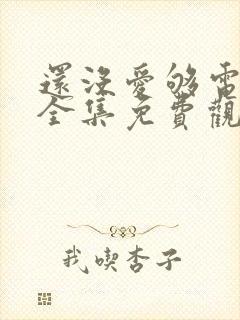 還沒愛够電
全集免費觀
我喫杏子